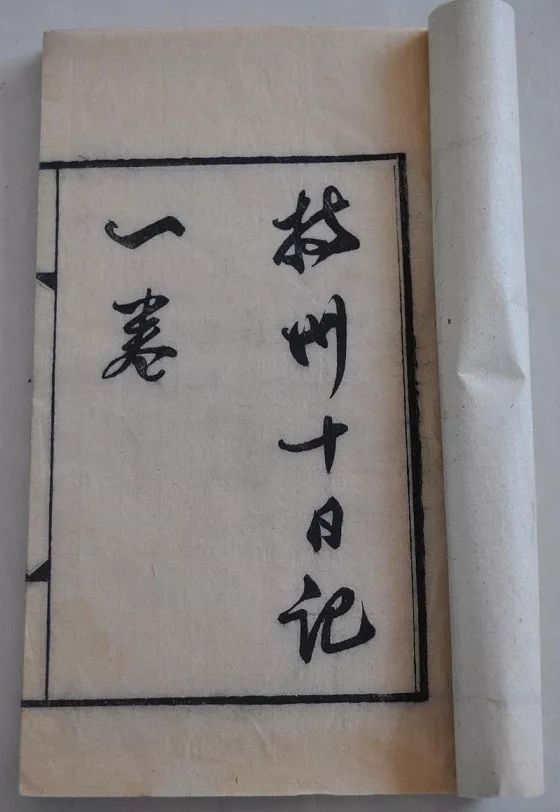 揚州十日记
一卷